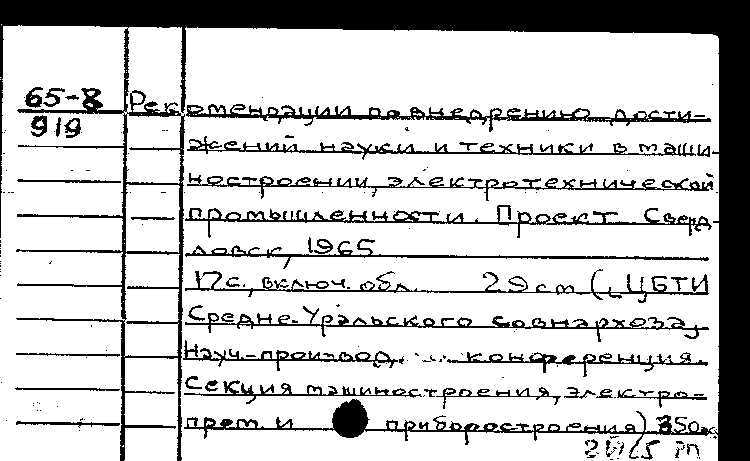 65-8 Рекомендации по внедрению дости-
919 жений науки и техники в маши-
ностроении, электротехнической
промышленности. Проект Сверд-
ловск, 1965
17 с., включ. обл. 29 см (ЦБТИ
Средне-Уральского совнархоза,
Науч.-производ. конференция.
Секция машиностроения, электро-
пром. и приборостроения) 350